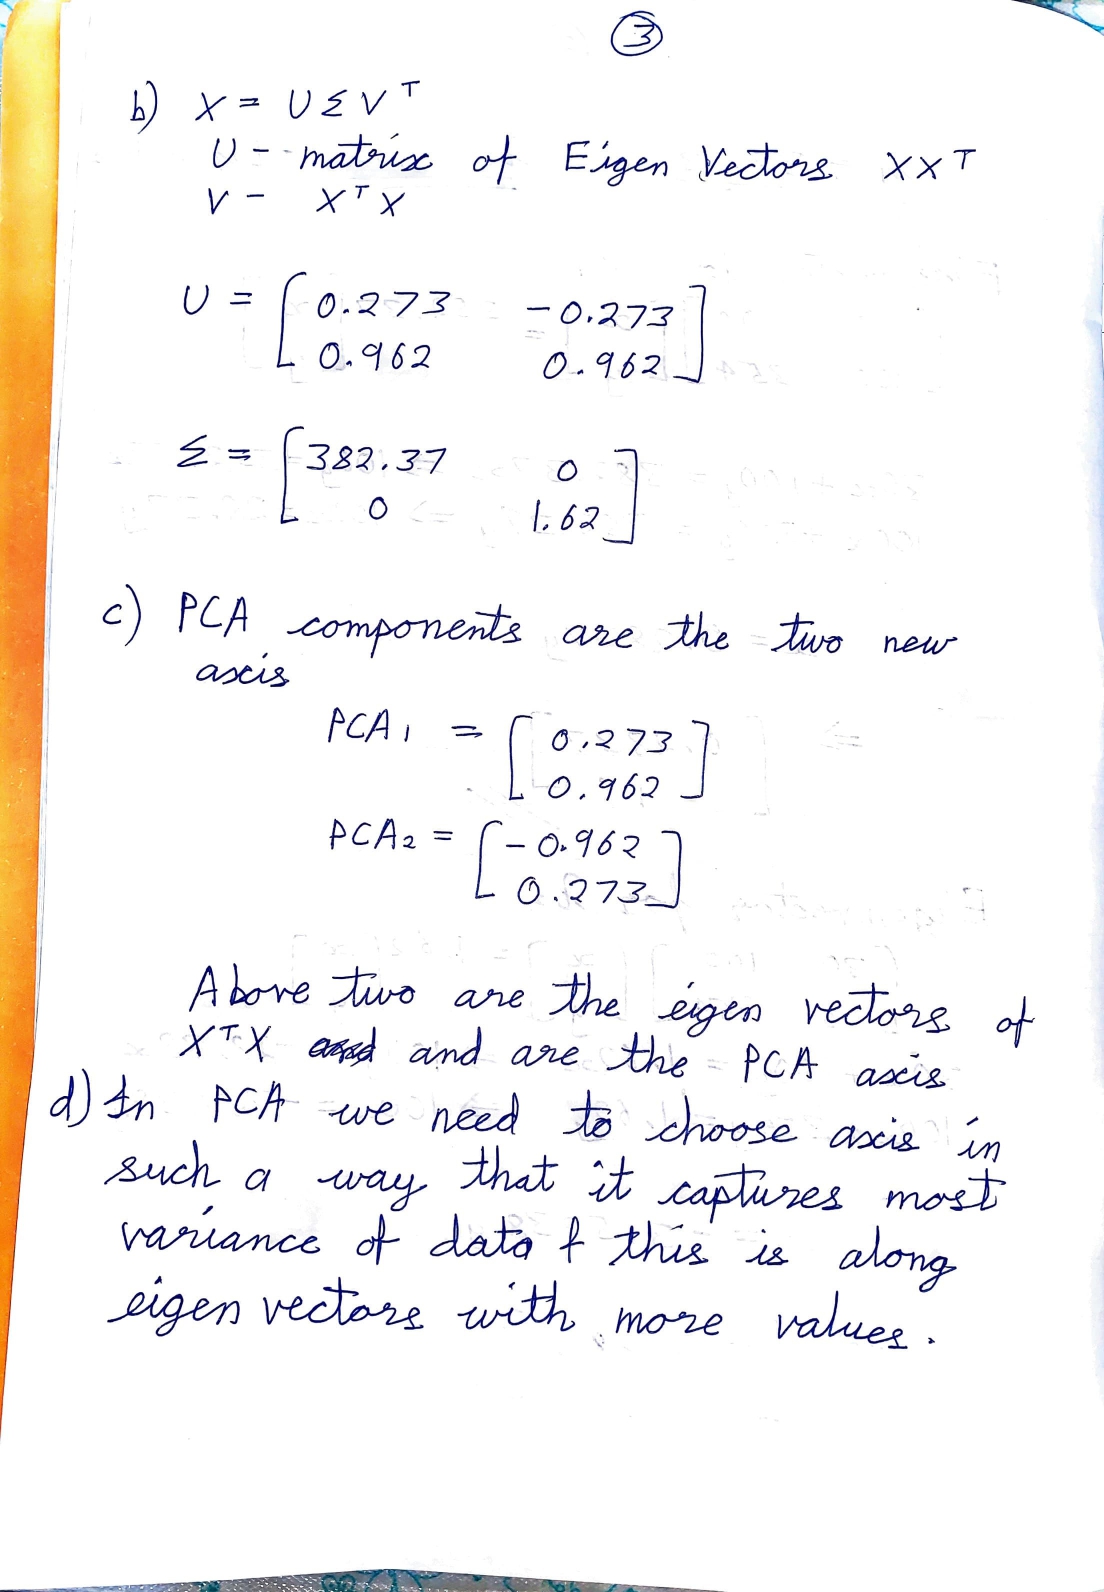 3
b) X = U Σ V^T
U - matrix of Eigen Vectors XX^T
V - X^T X
U = [ 0.273 -0.273 ]
[ 0.962 0.962 ]
Σ = [ 382.37 0 ]
[ 0 1.62 ]
c) PCA components are the two new
axis
PCA1 = [ 0.273 ]
[ 0.962 ]
PCA2 = [ -0.962 ]
[ 0.273 ]
Above two are the eigen vectors of
X^T X and are the PCA axis
d) In PCA we need to choose axis in
such a way that it captures most
variance of data & this is along
eigen vectors with more values.